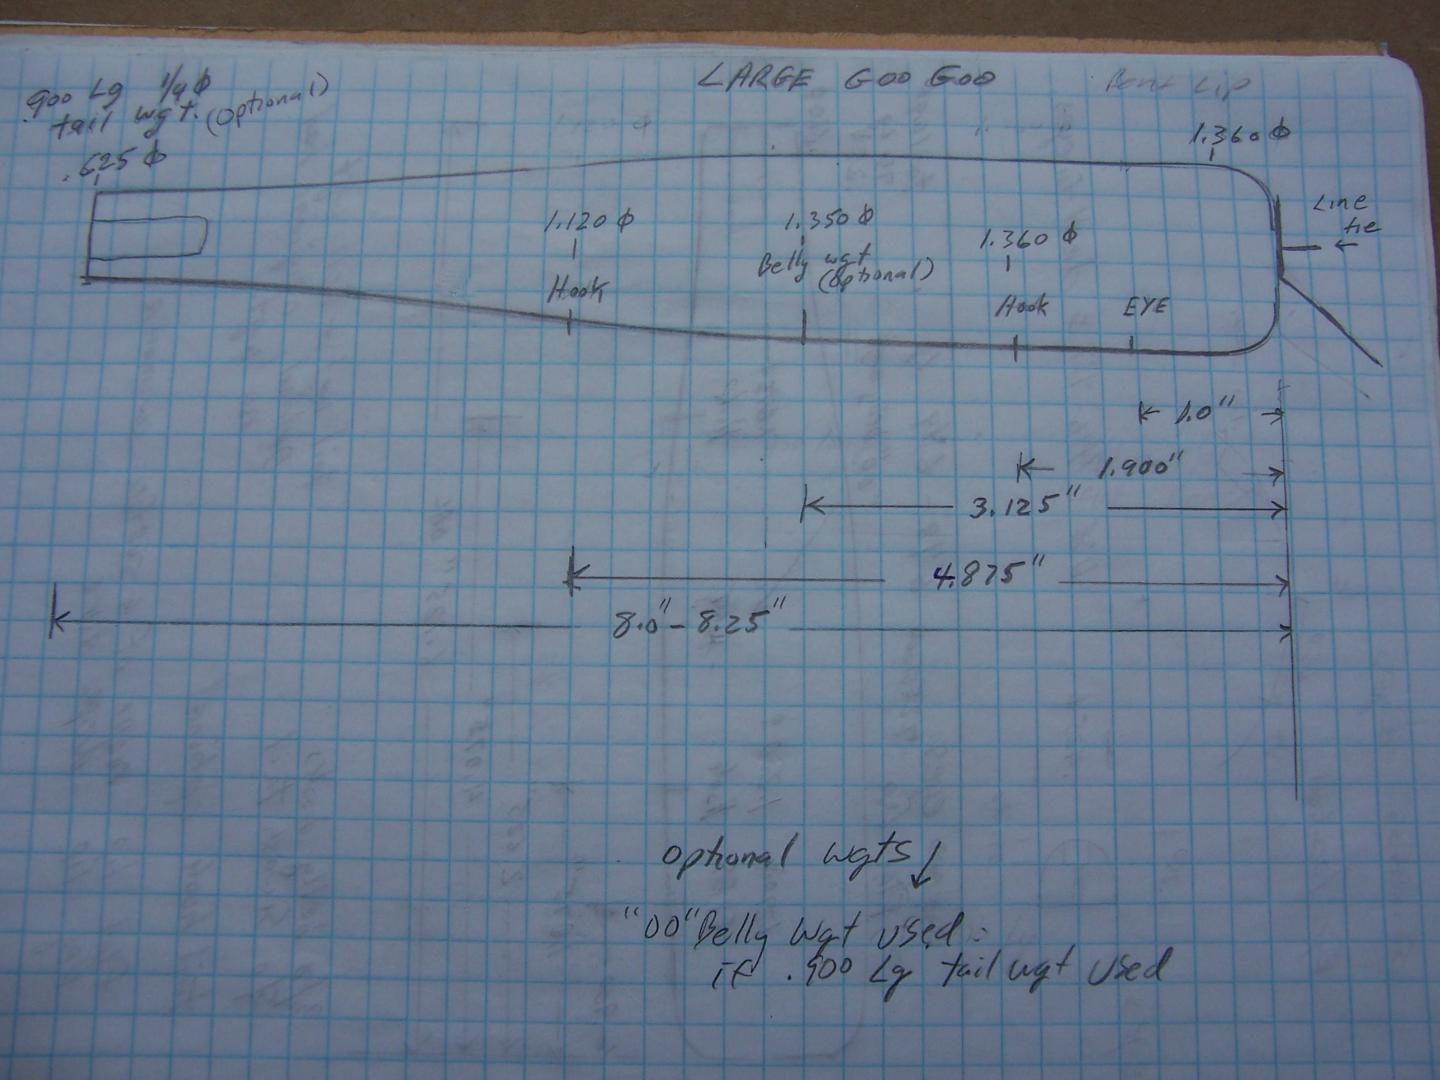 LARGE GOO GOO
Bent Lip
.900 Lg 1/4 ϕ
tail wgt. (optional)
.625 ϕ
1.360 ϕ
Line
tie
1.120 ϕ
Hook
1.350 ϕ
Belly wgt
(optional)
1.360 ϕ
Hook
EYE
1.0"
1.900"
3.125"
4.875"
8.0" - 8.25"
optional wgts ↓
"00" Belly wgt used:
if .900 Lg tail wgt used